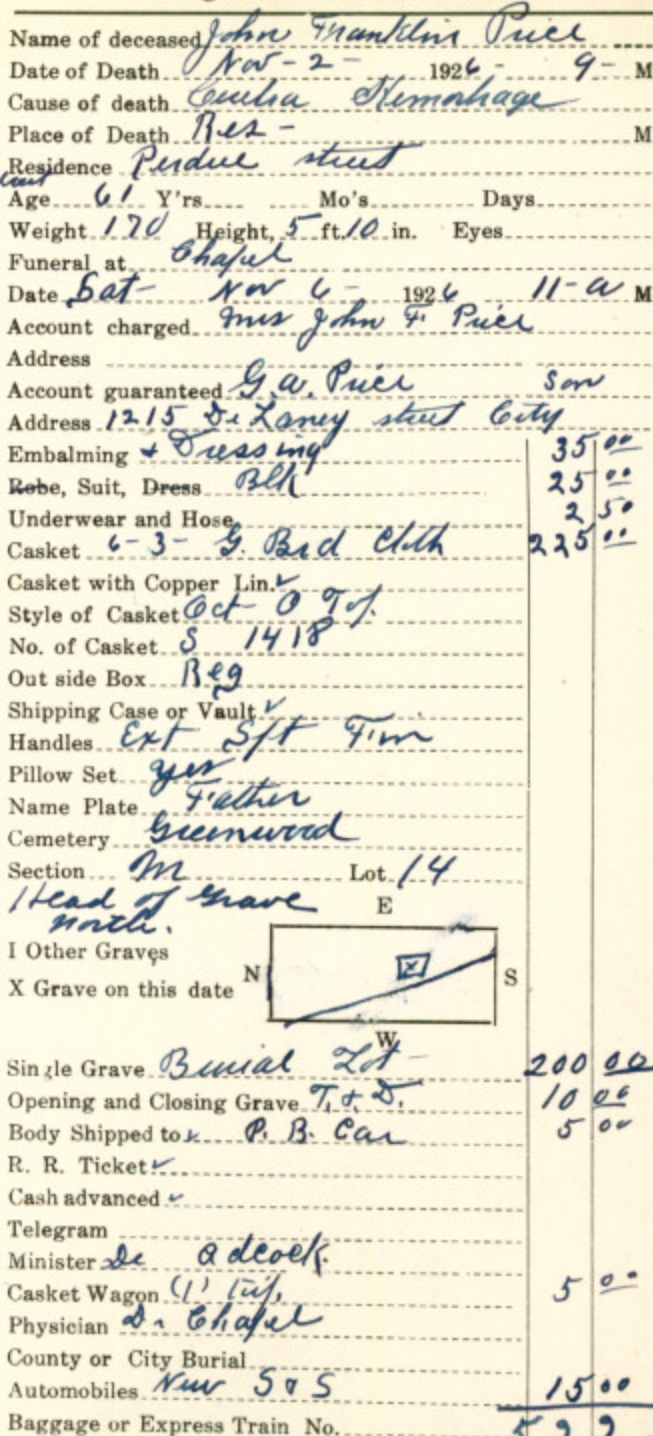 Name of deceased John Franklin Price
Date of Death Nov - 2 - 1926 - 9 - M
Cause of death Hemorhage
Place of Death Res - M
Residence Perdue street
Age 61 Y'rs Mo's Days
Weight 170 Height, 5 ft. 10 in. Eyes
Funeral at Chapel
Date Sat - Nov 6 - 1926 11 - a M
Account charged Mrs John F. Price
Address
Account guaranteed G. A. Price Son
Address 1215 De Laney street City
Embalming & Dressing 35 00
Robe, Suit, Dress Blk 25 00
Underwear and Hose 2 50
Casket 6-3- G. Brd Cloth 225 00
Casket with Copper Lin. ✓
Style of Casket Oct O Top.
No. of Casket S 1418
Out side Box Reg
Shipping Case or Vault ✓
Handles Ext
Pillow Set yes
Name Plate Father
Cemetery Greenwood
Section M Lot 14
Head of Grave
North.
E
I Other Graves
N X S
X Grave on this date
W
Single Grave Burial Lot - 200 00
Opening and Closing Grave T. & D. 10 00
Body Shipped to ✓ P. B. Car 5 00
R. R. Ticket ✓
Cash advanced ✓
Telegram
Minister Adcock.
Casket Wagon 5 00
Physician Dr Chapel
County or City Burial
Automobiles New S & S 15 00
Baggage or Express Train No.